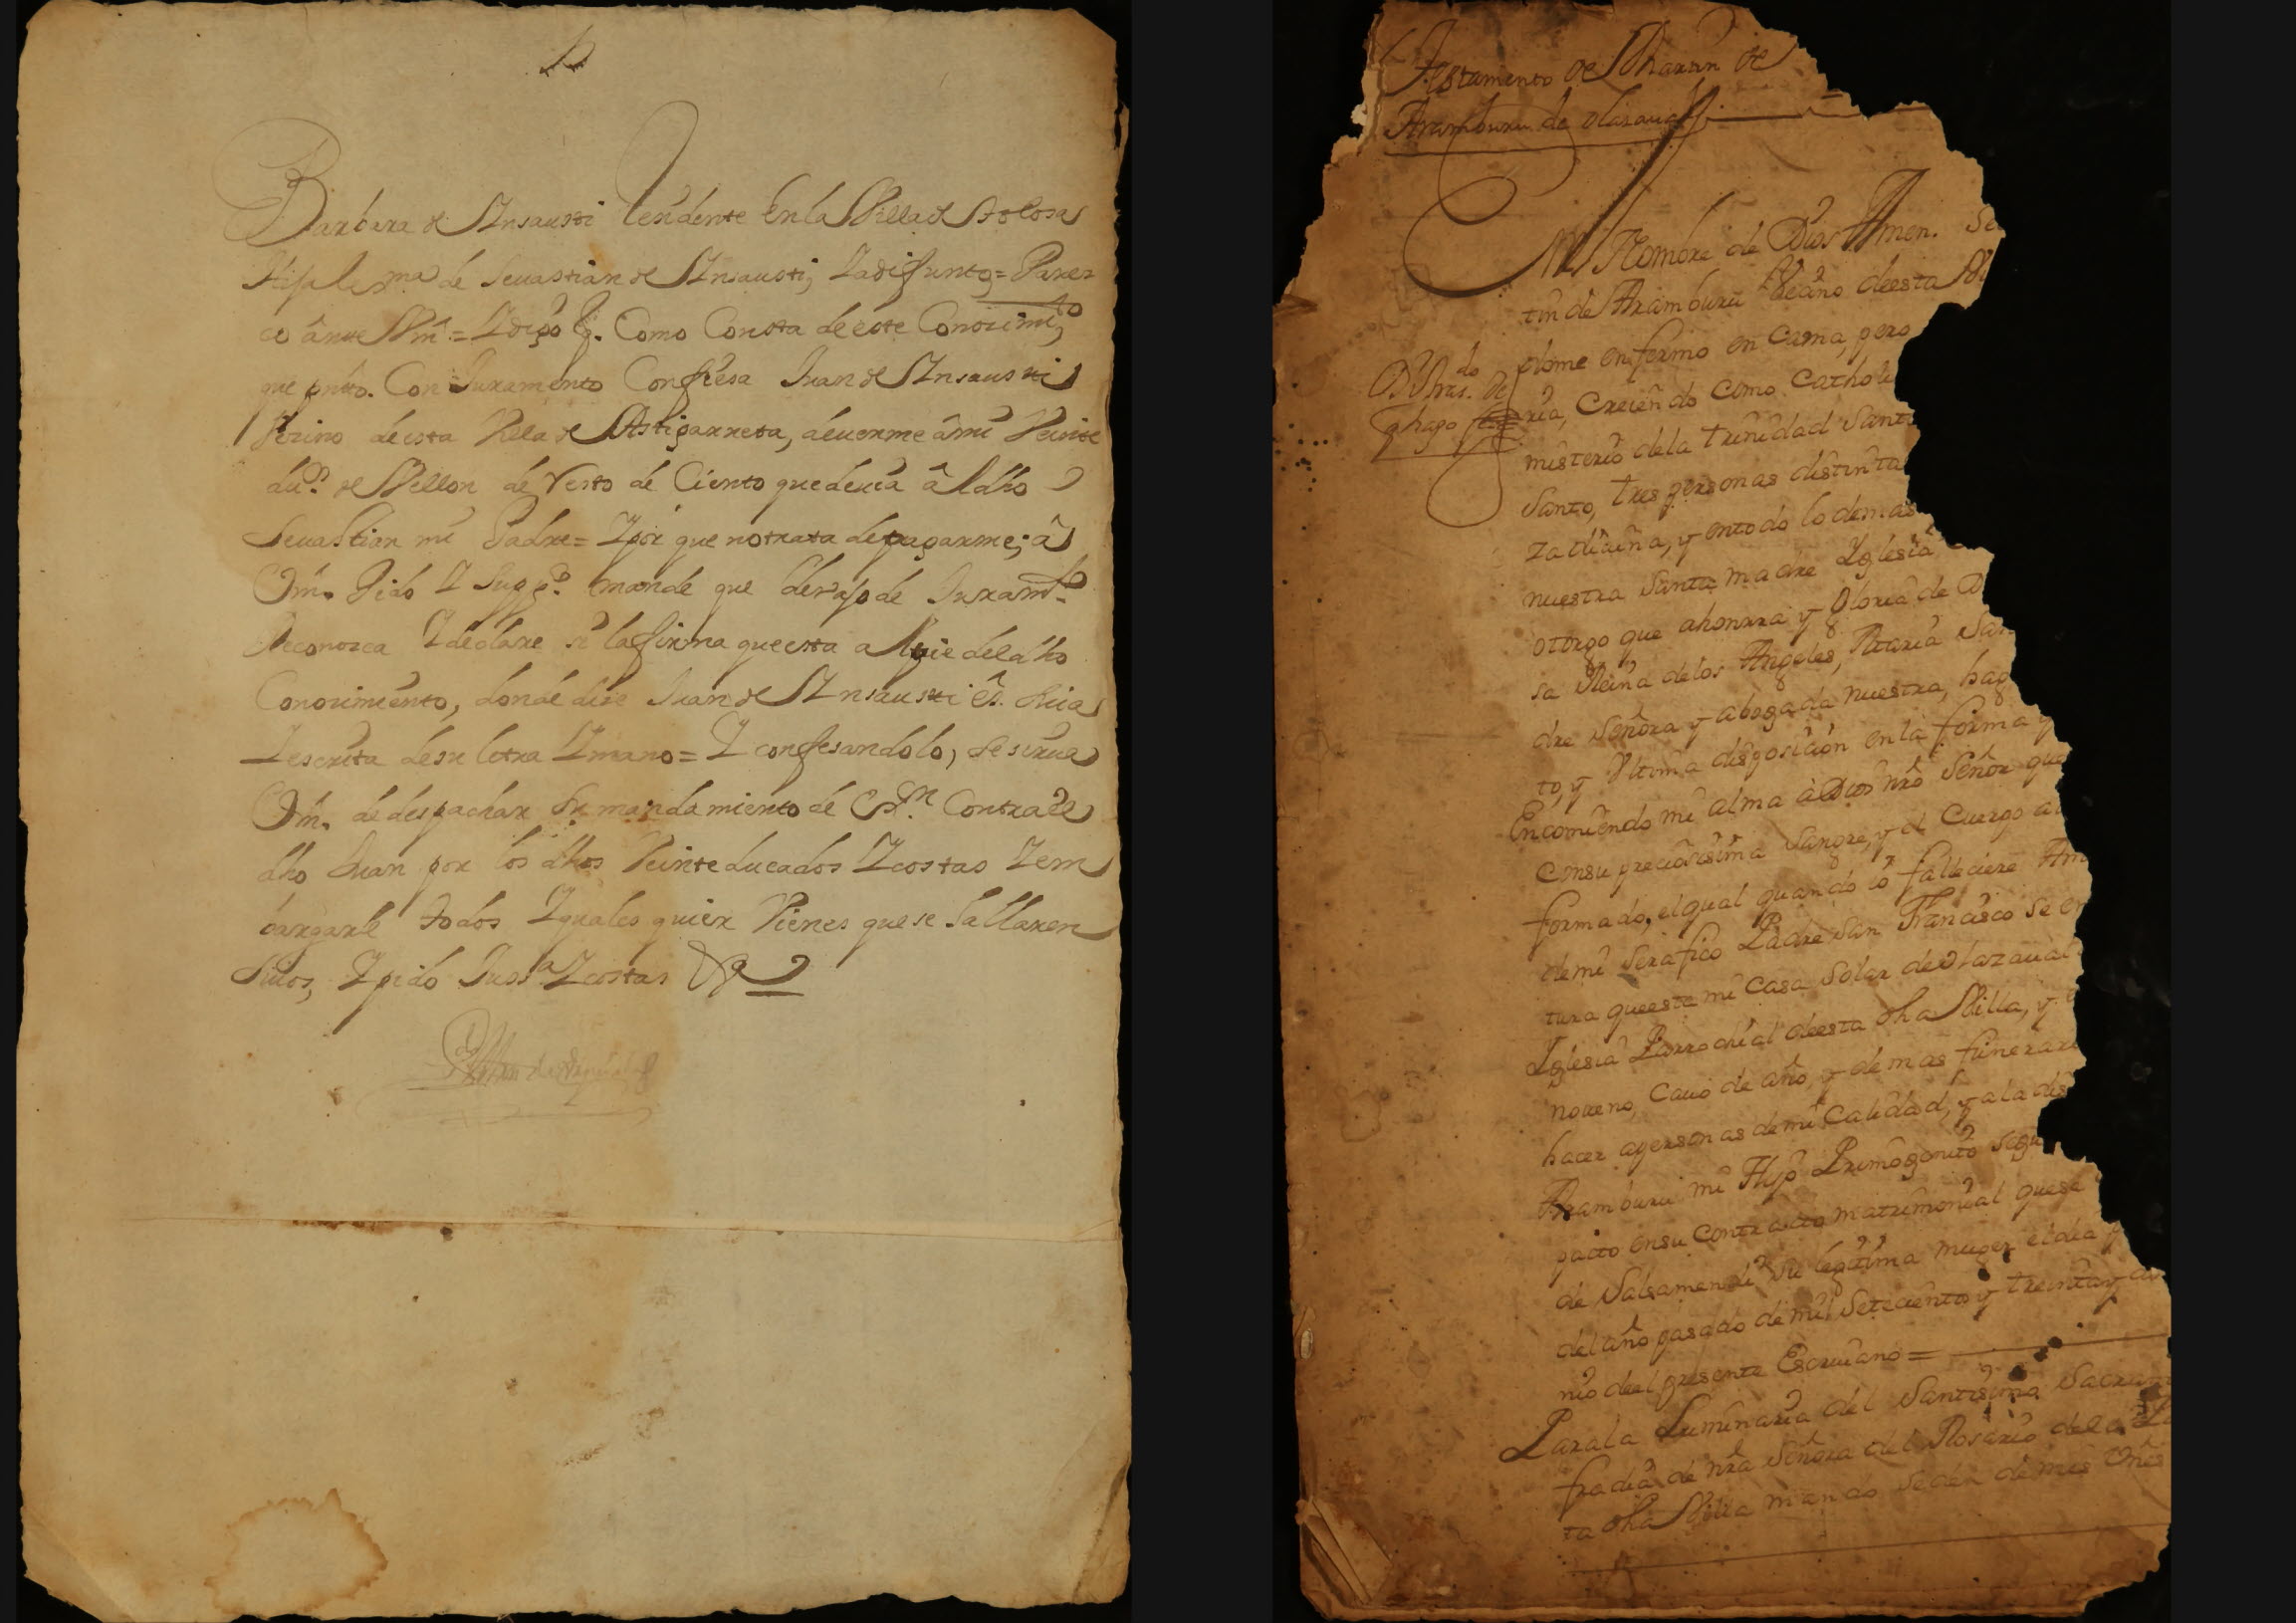 Barbara de Insausti residente en la Villa de Tolosa
Hija lexma de Seuastian de Insausti, Ya difunto = Parez
co ânte Vm = Y digo q. Como Consta de este Conozimito,
que pnto. Con Juramento Confiesa Juan de Insausti
Vezino de esta Villa de Astigarreta, deuerme â mi Veinte
dus. de Vellon de resto de Ciento que deuia â el dho
Seuastian mi Padre = Y por que no trata de pagarme; â
Vm. Pido Y Suppco. mande que devajo de Juramto
Reconozca Y declare si la firma que esta al pie del dho
Conozimiento, donde dize Juan de Insausti és. suia
Y escrita de su letra Y mano = Y confesandolo, se sirua
Vm. de despachar Su mandamiento de exon. Contra el
dho Juan por los dhos Veinte ducados Y costas Y em
bargarle todos Y quales quier Vienes que se hallaren
suios, Y pido Jussa Y costas &a
Testamento de Martin de
Aramburu de olazaual
Nombre de Dios Amen. Se
tin de Aramburu Vezino de esta Vi
dome enfermo en Cama, pero
ria, Creiendo como Catholi
misterio de la trinidad Santi
Santo, tres personas distintas
za diuina, y en todo lo demas
nuestra Santa madre Yglesia
otorgo que a honrra y gloria de D
sa Reina de los Angeles, Maria San
dre Señora y abogada nuestra, hag
to, y Vltima disposicion en la forma y
Encomiendo mi alma à Dios nrô Señor que
con su preciosissima Sangre, y el Cuerpo a la
formado, el qual quando io falleciere Am
de mi Serafico Padre San Francisco se en
tura que esta mi Casa Solar de olazaual
Yglesia Parrochial de esta dha Villa, y
noueno, Cauo de año, y demas funerari
hacer a personas de mi Calidad, y a la dis
Aramburu mi Hijo Primogenito segu
pacto en su Contracto matrimonial que se
de Salsamendi su legitima muger el dia
del año pasado de mil Setecientos y treinta y
nio del presente Escriuano =
Para la Luminaria del Santisimo Sacram
fradia de nrâ Señora del Rosario de la
ta dha Villa mando se den de mis vienes